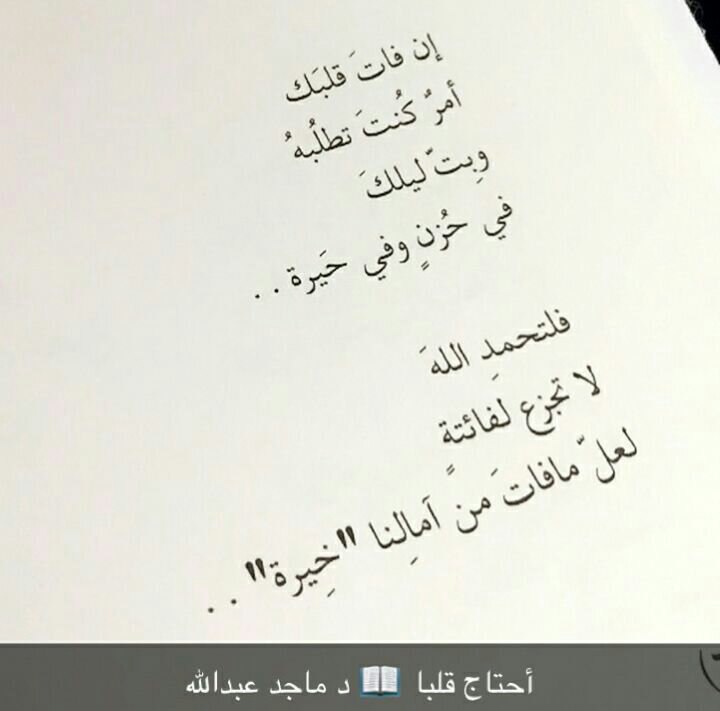 إن فاتَ قلبَك
أمرٌ كُنتَ تطلُبهُ
وِبتّ ليلكَ
في حُزنٍ وفي حَيرة . .
فلتحمدِ اللهَ
لا تجزع لفائتةٍ
لعلّ مافاتَ من آمالِنا "خِيرة" . .
أحتاج قلبا 📖 د ماجد عبدالله